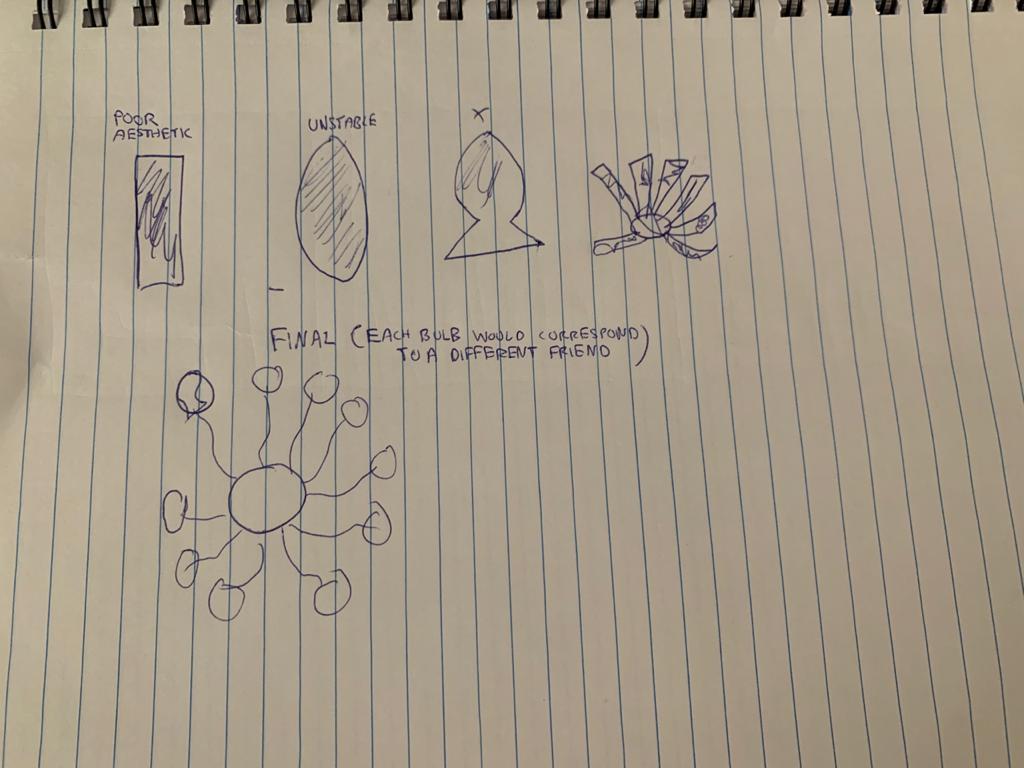 POOR
AESTHETIC
UNSTABLE
X
FINAL (EACH BULB WOULD CORRESPOND
TO A DIFFERENT FRIEND)